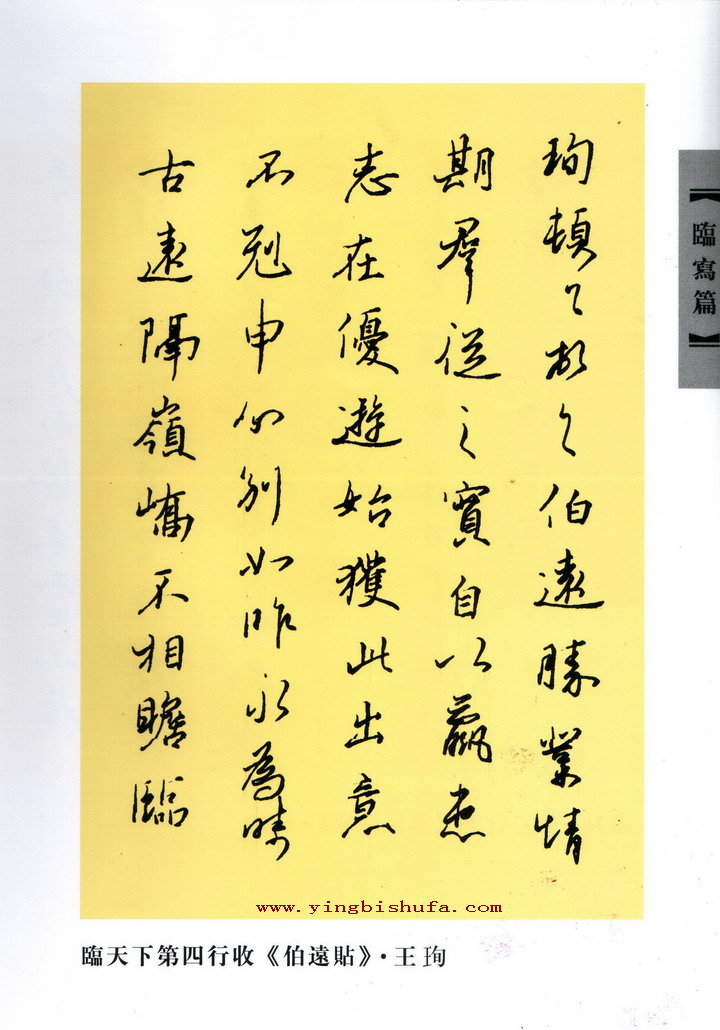 珣頓々首々伯遠勝業情
期羣從之寶自以羸患
志在優遊始獲此出意
不剋申分別如昨永為疇
古遠隔嶺嶠不相瞻臨
【臨寫篇】
www.yingbishufa.com
臨天下第四行收《伯遠貼》·王珣